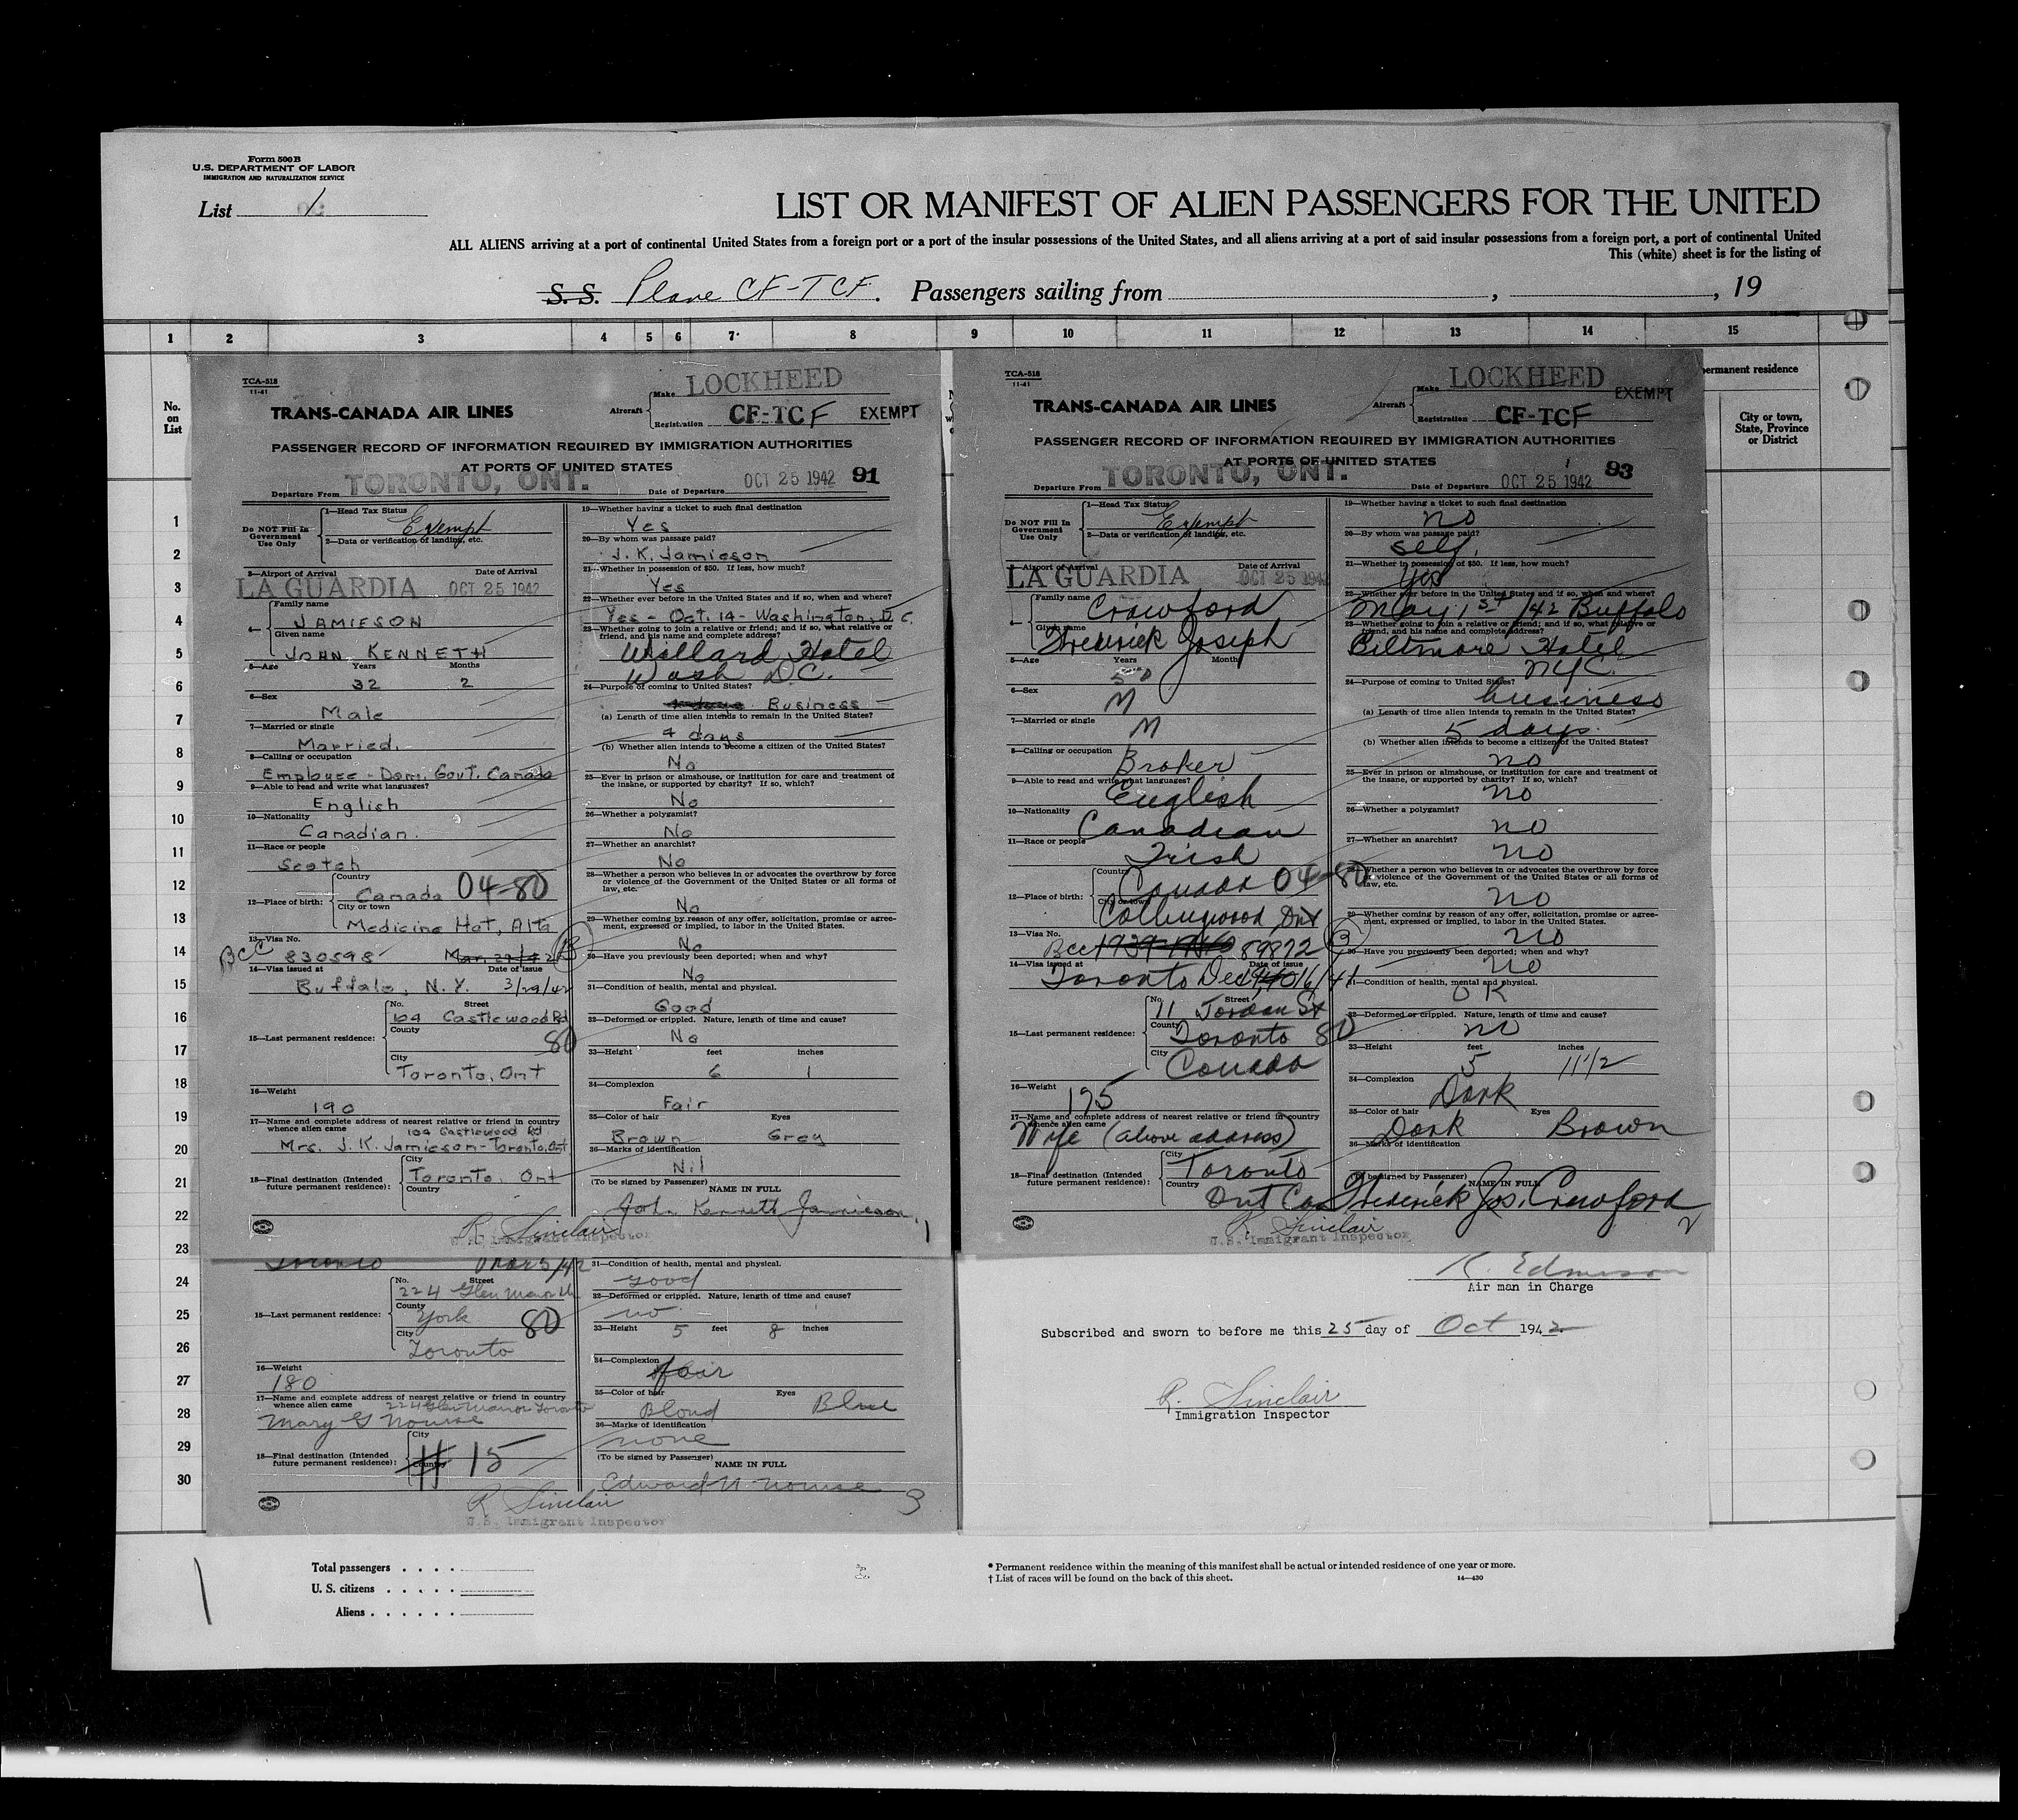 Form 500 B
U.S. DEPARTMENT OF LABOR
IMMIGRATION AND NATURALIZATION SERVICE
List 1
LIST OR MANIFEST OF ALIEN PASSENGERS FOR THE UNITED
ALL ALIENS arriving at a port of continental United States from a foreign port or a port of the insular possessions of the United States, and all aliens arriving at a port of said insular possessions from a foreign port, a port of continental United
This (white) sheet is for the listing of
S.S. Plane CF-TCF. Passengers sailing from , , 19
1 2 3 4 5 6 7 8 9 10 11 12 13 14 15
No. on List
permanent residence
City or town, State, Province or District
1
2
3
4
5
6
7
8
9
10
11
12
13
14
15
16
17
18
19
20
21
22
23
24
25
26
27
28
29
30
TCA-518
11-41
TRANS-CANADA AIR LINES
Aircraft Make LOCKHEED
Registration CF-TCF EXEMPT
PASSENGER RECORD OF INFORMATION REQUIRED BY IMMIGRATION AUTHORITIES
AT PORTS OF UNITED STATES
Departure From TORONTO, ONT. Date of Departure OCT 25 1942 91
Do NOT Fill In Government Use Only
1—Head Tax Status Exempt
2—Data or verification of landing, etc.
3—Airport of Arrival Date of Arrival
LA GUARDIA OCT 25 1942
4— Family name
JAMIESON
Given name
JOHN KENNETH
5—Age Years Months
32 2
6—Sex
Male
7—Married or single
Married.
8—Calling or occupation
Employee - Dom. Govt. Canada
9—Able to read and write what languages?
English
10—Nationality
Canadian.
11—Race or people
Scotch
12—Place of birth: Country
Canada 04-80
City or town
Medicine Hat, Alta
13—Visa No.
BCC 830598
14—Visa issued at Date of issue
Buffalo, N.Y. 3/29/42
15—Last permanent residence: No. Street
104 Castlewood Rd
County
80
City
Toronto, Ont
16—Weight
190
17—Name and complete address of nearest relative or friend in country
whence alien came 104 Castlewood Rd
Mrs. J. K. Jamieson - Toronto, Ont
18—Final destination (Intended future permanent residence): City
Toronto, Ont
Country
19—Whether having a ticket to such final destination
Yes
20—By whom was passage paid?
J. K. Jamieson
21—Whether in possession of $50. If less, how much?
Yes
22—Whether ever before in the United States and if so, when and where?
Yes - Oct. 14 - Washington, D.C.
23—Whether going to join a relative or friend; and if so, what relative or
friend, and his name and complete address?
Willard Hotel
Wash DC.
24—Purpose of coming to United States?
Business
(a) Length of time alien intends to remain in the United States?
4 days
(b) Whether alien intends to become a citizen of the United States?
No
25—Ever in prison or almshouse, or institution for care and treatment of
the insane, or supported by charity? If so, which?
No
26—Whether a polygamist?
No
27—Whether an anarchist?
No
28—Whether a person who believes in or advocates the overthrow by force
or violence of the Government of the United States or all forms of
law, etc.
No
29—Whether coming by reason of any offer, solicitation, promise or agree-
ment, expressed or implied, to labor in the United States.
No
30—Have you previously been deported; when and why?
No
31—Condition of health, mental and physical.
Good
32—Deformed or crippled. Nature, length of time and cause?
No
33—Height feet inches
6 1
34—Complexion
Fair
35—Color of hair Eyes
Brown Grey
36—Marks of identification
Nil
(To be signed by Passenger) NAME IN FULL
John Kenneth Jamieson 1
R. Sinclair
U.S. Immigrant Inspector
TCA-518
11-41
TRANS-CANADA AIR LINES
Aircraft Make LOCKHEED
Registration CF-TCF EXEMPT
PASSENGER RECORD OF INFORMATION REQUIRED BY IMMIGRATION AUTHORITIES
AT PORTS OF UNITED STATES
Departure From TORONTO, ONT. Date of Departure OCT 25 1942 93
Do NOT Fill In Government Use Only
1—Head Tax Status Exempt
2—Data or verification of landing, etc.
3—Airport of Arrival Date of Arrival
LA GUARDIA OCT 25 1942
4— Family name
Crawford
Given name
Frederick Joseph
5—Age Years Months
50
6—Sex
M
7—Married or single
M
8—Calling or occupation
Broker
9—Able to read and write what languages?
English
10—Nationality
Canadian
11—Race or people
Irish
12—Place of birth: Country
Canada 04-80
City or town
Collingwood, Ont
13—Visa No.
BCC 89872
14—Visa issued at Date of issue
Toronto Dec 16/41
15—Last permanent residence: No. Street
11 Jordan St
County
Toronto 80
City
Canada
16—Weight
175
17—Name and complete address of nearest relative or friend in country
whence alien came
Wife (above address)
18—Final destination (Intended future permanent residence): City
Toronto
Country
Ont Can
19—Whether having a ticket to such final destination
no
20—By whom was passage paid?
self.
21—Whether in possession of $50. If less, how much?
Yes
22—Whether ever before in the United States and if so, when and where?
May 1st /42 Buffalo
23—Whether going to join a relative or friend; and if so, what relative or
friend, and his name and complete address?
Biltmore Hotel
NYC.
24—Purpose of coming to United States?
business
(a) Length of time alien intends to remain in the United States?
5 days.
(b) Whether alien intends to become a citizen of the United States?
no
25—Ever in prison or almshouse, or institution for care and treatment of
the insane, or supported by charity? If so, which?
no
26—Whether a polygamist?
no
27—Whether an anarchist?
no
28—Whether a person who believes in or advocates the overthrow by force
or violence of the Government of the United States or all forms of
law, etc.
no
29—Whether coming by reason of any offer, solicitation, promise or agree-
ment, expressed or implied, to labor in the United States.
no
30—Have you previously been deported; when and why?
no
31—Condition of health, mental and physical.
OK
32—Deformed or crippled. Nature, length of time and cause?
no
33—Height feet inches
5 11 1/2
34—Complexion
Dark
35—Color of hair Eyes
Dark Brown
36—Marks of identification
(To be signed by Passenger) NAME IN FULL
Frederick Jos. Crawford
2
R. Sinclair
U.S. Immigrant Inspector
Toronto Mar 5/42
15—Last permanent residence: No. Street
224 Glen Manor
County
York 80
City
Toronto
16—Weight
180
17—Name and complete address of nearest relative or friend in country
whence alien came 224 Glen Manor Toronto
Mary G Nourse
18—Final destination (Intended future permanent residence): City
Country
# 15
31—Condition of health, mental and physical.
good
32—Deformed or crippled. Nature, length of time and cause?
no
33—Height 5 feet 8 inches
34—Complexion
fair
35—Color of hair Eyes
Blond Blue
36—Marks of identification
none
(To be signed by Passenger) NAME IN FULL
Edward N. Nourse
3
R Sinclair
U.S. Immigrant Inspector
Air man in Charge
Subscribed and sworn to before me this 25 day of Oct 1942
R. Sinclair
Immigration Inspector
Total passengers . . . .
U. S. citizens . . . . .
Aliens . . . . . .
* Permanent residence within the meaning of this manifest shall be actual or intended residence of one year or more.
† List of races will be found on the back of this sheet. 14—430